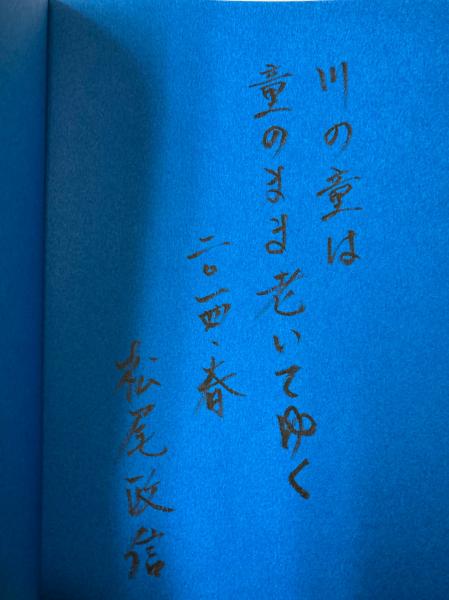 川の童は
童のまま老いてゆく
二〇一四、春
松尾政信